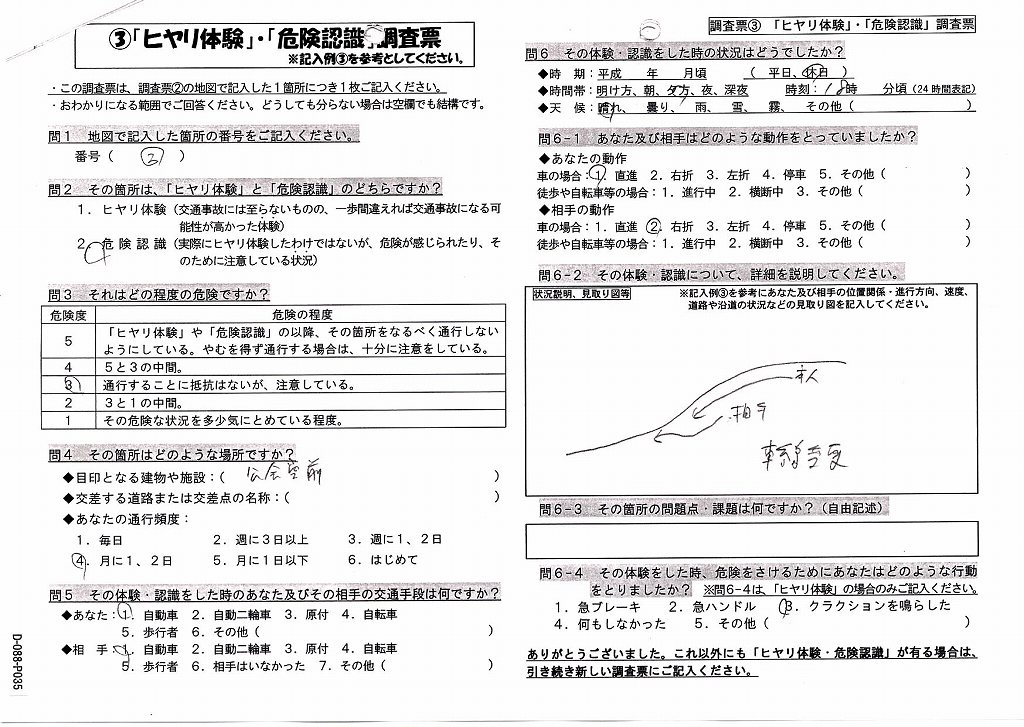 ③「ヒヤリ体験」・「危険認識」調査票
※記入例③を参考としてください。
・この調査票は、調査票②の地図で記入した１箇所につき１枚ご記入ください。
・おわかりになる範囲でご回答ください。どうしても分らない場合は空欄でも結構です。
問１ 地図で記入した箇所の番号をご記入ください。
番号（ ③ ）
問２ その箇所は、「ヒヤリ体験」と「危険認識」のどちらですか？
１．ヒヤリ体験（交通事故には至らないものの、一歩間違えれば交通事故になる可
能性が高かった体験）
２．危険認識（実際にヒヤリ体験したわけではないが、危険が感じられたり、そ
のために注意している状況）
問３ それはどの程度の危険ですか？
危険度 危険の程度
５ 「ヒヤリ体験」や「危険認識」の以降、その箇所をなるべく通行しない
ようにしている。やむを得ず通行する場合は、十分に注意をしている。
４ ５と３の中間。
３ 通行することに抵抗はないが、注意している。
２ ３と１の中間。
１ その危険な状況を多少気にとめている程度。
問４ その箇所はどのような場所ですか？
◆目印となる建物や施設：（ 公会堂前 ）
◆交差する道路または交差点の名称：（ ）
◆あなたの通行頻度：
１．毎日 ２．週に３日以上 ３．週に１、２日
４．月に１、２日 ５．月に１日以下 ６．はじめて
問５ その体験・認識をした時のあなた及びその相手の交通手段は何ですか？
◆あなた：１．自動車 ２．自動二輪車 ３．原付 ４．自転車
５．歩行者 ６．その他（ ）
◆相 手：１．自動車 ２．自動二輪車 ３．原付 ４．自転車
５．歩行者 ６．相手はいなかった ７．その他（ ）
D-088-P035
調査票③ 「ヒヤリ体験」・「危険認識」調査票
問６ その体験・認識をした時の状況はどうでしたか？
◆時 期：平成 年 月頃 （ 平日、休日 ）
◆時間帯：明け方、朝、夕方、夜、深夜 時刻：18時 分頃（24時間表記）
◆天 候：晴れ、 曇り、 雨、 雪、 霧、 その他（ ）
問６-１ あなた及び相手はどのような動作をとっていましたか？
◆あなたの動作
車の場合：１．直進 ２．右折 ３．左折 ４．停車 ５．その他（ ）
徒歩や自転車等の場合：１．進行中 ２．横断中 ３．その他（ ）
◆相手の動作
車の場合：１．直進 ２．右折 ３．左折 ４．停車 ５．その他（ ）
徒歩や自転車等の場合：１．進行中 ２．横断中 ３．その他（ ）
問６-２ その体験・認識について、詳細を説明してください。
状況説明、見取り図等 ※記入例③を参考にあなた及び相手の位置関係・進行方向、速度、
道路や沿道の状況などの見取り図を記入してください。
本人
相手
車線変更
問６-３ その箇所の問題点・課題は何ですか？（自由記述）
問６-４ その体験をした時、危険をさけるためにあなたはどのような行動
をとりましたか？ ※問６-４は、「ヒヤリ体験」の場合のみご記入ください。
１．急ブレーキ ２．急ハンドル ３．クラクションを鳴らした
４．何もしなかった ５．その他（ ）
ありがとうございました。これ以外にも「ヒヤリ体験・危険認識」が有る場合は、
引き続き新しい調査票にご記入ください。